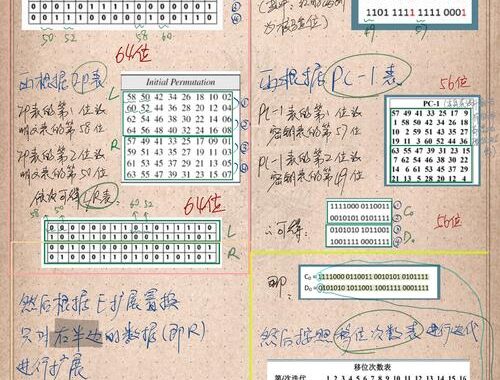 50 52 58 60
64位
①根据IP表
Initial Permutation
58 50 42 34 26 18 10 02
60 52 44 36 28 20 12 04
62 54 46 38 30 22 14 06
64 56 48 40 32 24 16 08
57 49 41 33 25 17 09 01
59 51 43 35 27 19 11 03
61 53 45 37 29 21 13 05
63 55 47 39 31 23 15 07
L
R
IP表的第1位为
明文表的第58位
IP表的第2位为
明文表的第50位
依次可得 LR表:
58 50 60 52
64位
L
R
然后根据E扩展置换
只对右半边的数据(即R)
进行扩展
1101 1111 1111 0001
①根据PC-1表
56位
PC-1
57 49 41 33 25 17 9
1 58 50 42 34 26 18
10 2 59 51 43 35 27
19 11 3 60 52 44 36
63 55 47 39 31 23 15
7 62 54 46 38 30 22
14 6 61 53 45 37 29
21 13 5 28 20 12 4
PC-1表的第1位为
密钥表的第57位
PC-1表的第2位为
密钥表的第49位
可得:
1111000 0110011
0010101 0101111
0101010 1011001
1001111 0001111
C₀
D₀
56位
即:
C₀ = 1111000 0110011 0010101 0101111
D₀ = 0101010 1011001 1001111 0001111
然后按照(移位次数表)进行迭代
移位次数表
第i次迭代 1 2 3 4 5 6 7 8 9 10 11 12 13 14 15 16